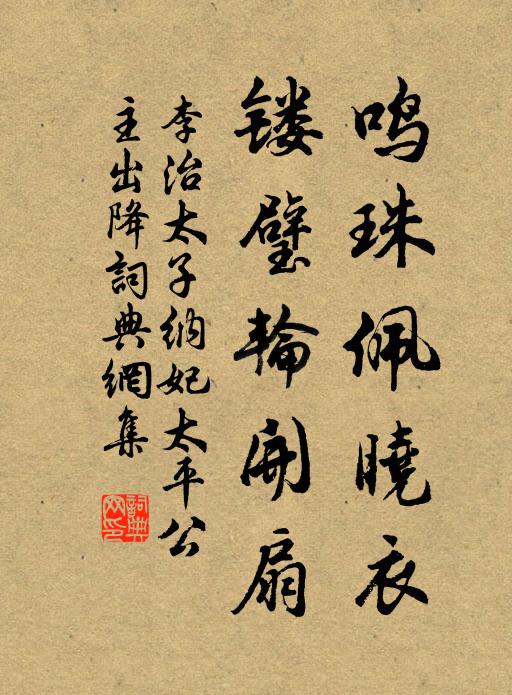 鸣珠佩曉衣
镂璧輪開扇
李治太子納妃太平公
主出降詞典網集
詞典網印